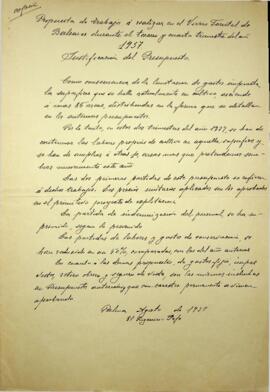 copia
Propuesta de trabajos a realizar en el Vivero Forestal de
Baleares durante el tercer y cuarto trimestre del año
1937
Justificación del Presupuesto.
Como consecuencia de la de gastos impuesta,
la superficie que se halla actualmente en cultivo asciende
a unas 85 áreas, distribuidas en la forma que se detallan
en los anteriores presupuestos.
Por lo tanto, en estos dos trimestres del año 1937, se han de
continuar las labores propias de cultivo en aquella superficie y
se han de ampliar a otras áreas mas que pretendemos sem-
brar nuevamente este año.
Las dos primeras partidas de este presupuesto se refieren
a dichos trabajos. Los precios unitarios aplicados son los aprobados
en el primitivo proyecto de explotación.
La partida de indemnización del personal se ha su-
primido, segun lo prevenido.
Las partidas de labores y gastos de conservación, se
han reducido en un 50%, comparadas con las del año anterior.
En cuanto a las demas propuestas de gastos fijos, impre-
vistos, sobre obreros y seguro de vida, son las mismas incluidas
en Presupuestos anteriores y que con caracter permanente se vienen
aprobando.
Palma Agosto de 1937
El Ingeniero-Jefe